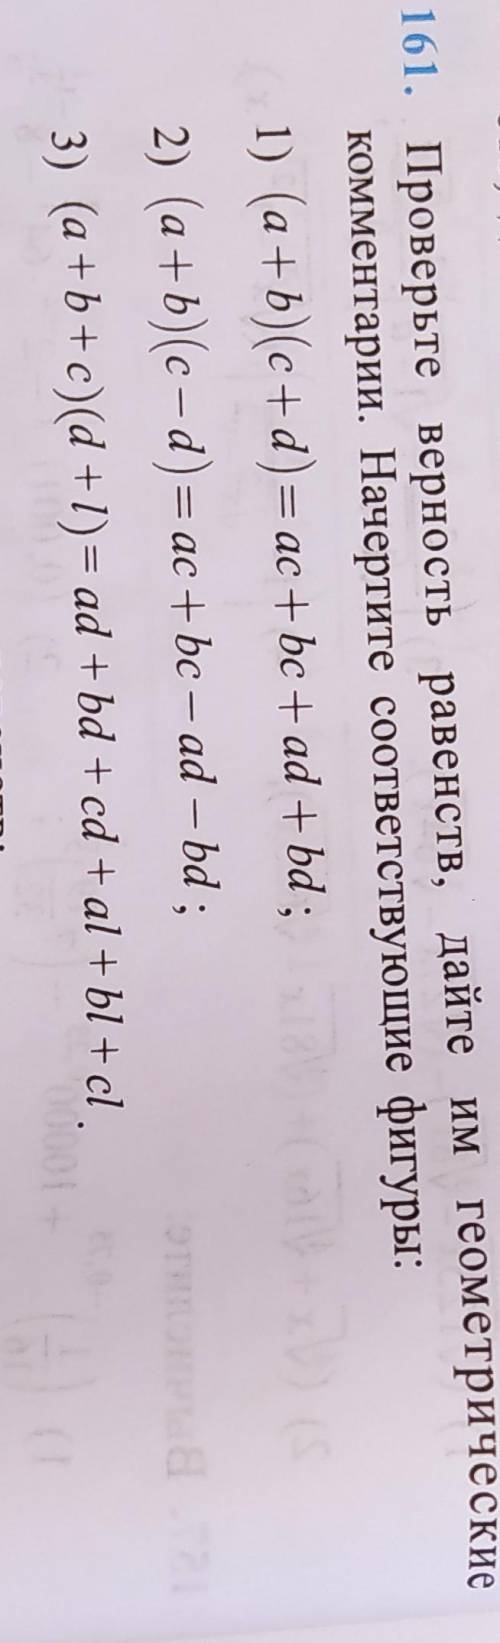 161. Проверьте верность равенств, дайте им геометрические
комментарии. Начертите соответствующие фигуры:
1) (a + b)(c + d) = ac + bc + ad + bd ;
2) (a + b)(c − d) = ac + bc − ad − bd ;
3) (a + b + c)(d + l) = ad + bd + cd + al + bl + cl .